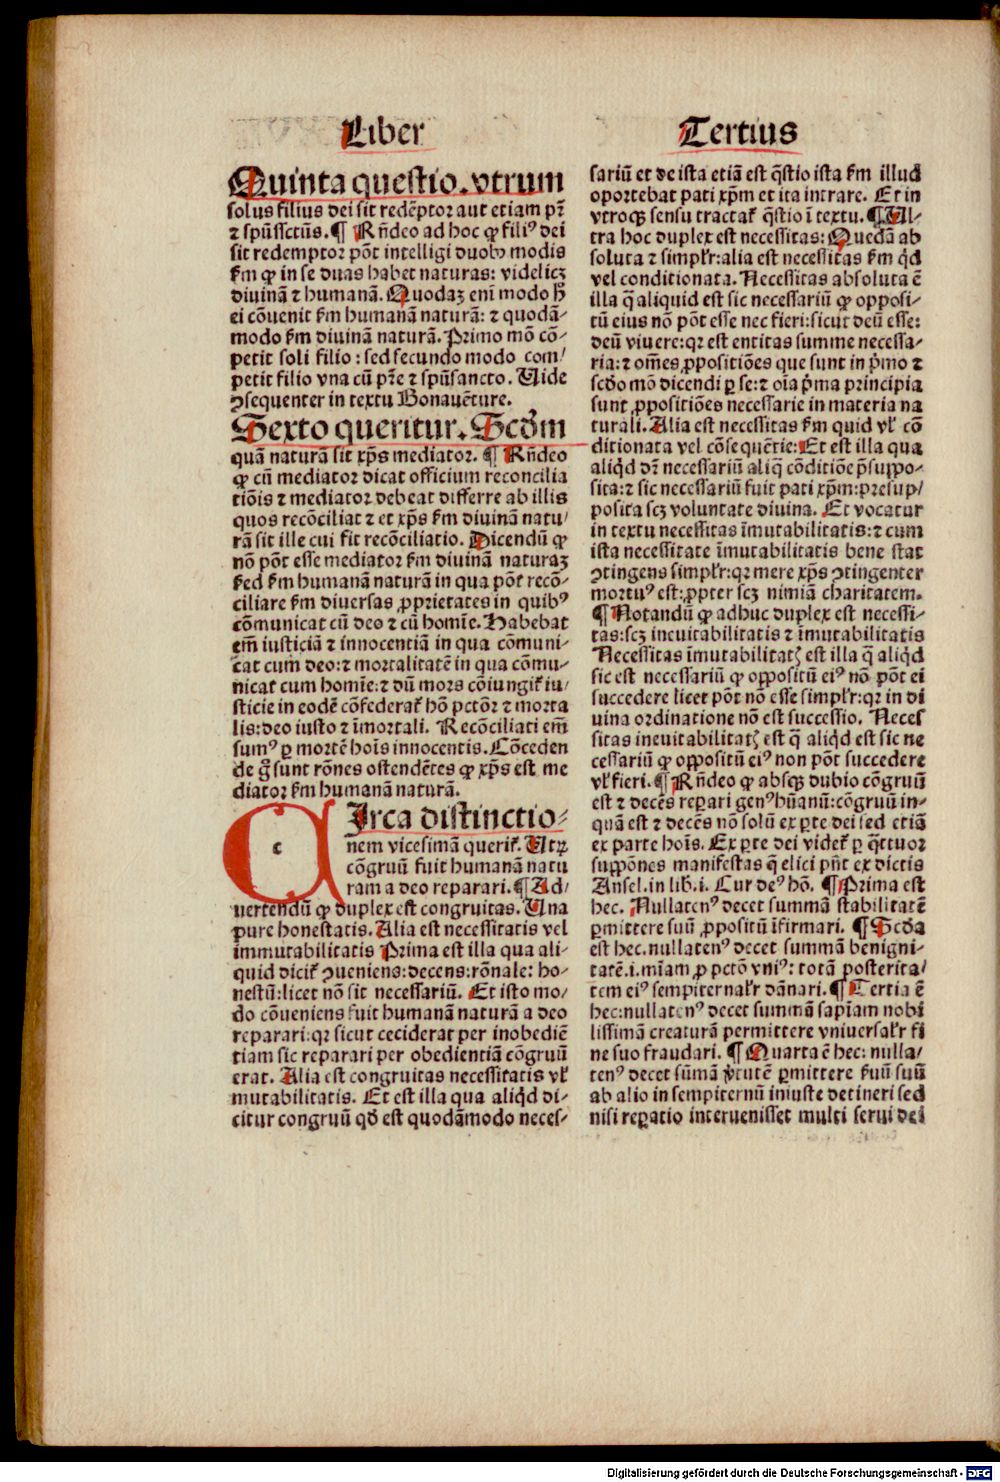 Liber
Quinta questio. vtrum
solus filius dei sit redēptor aut etiam pr̄
⁊ spūssctūs. ¶ Rn̄deo ad hoc ꝙ filiꝰ dei
sit redemptor pōt intelligi duobꝰ modis
ẜm ꝙ in se duas habet naturas: videlicꝫ
diuinā ⁊ humanā. Quodaꝫ eni modo hͦ
ei cōuenit ẜm humanā naturā: ⁊ quodā⸗
modo ẜm diuinā naturā. Primo mō cō⸗
petit soli filio : sed secundo modo com/
petit filio vna cū pr̄e ⁊ spūsancto. Uide
ꝯsequenter in textu Bonauēture.
Sexto queritur. Scd̓m
quā naturā sit xp̄s mediator. ¶ Rn̄deo
ꝙ cū mediator dicat officium reconcilia
tiōis ⁊ mediator debeat differre ab illis
quos recōciliat ⁊ et xp̄s ẜm diuinā natu/
rā sit ille cui fit recōciliatio. Dicendū ꝙ
nō pōt esse mediator ẜm diuinā naturaꝫ
ẜed ẜm humanā naturā in qua pōt recō⸗
ciliare ẜm diuersas ꝓprietates in quibꝰ
cōmunicat cū deo ⁊ cū homīe. Habebat
em̄ iusticiā ⁊ innocentiā in qua cōmuni⸗
cat cum deo: ⁊ mortalitatē in qua cōmu⸗
nicat cum homīe: ⁊ dū mors cōiungit̄ iu/
sticie in eodē cōfederat̄ hō pctōr ⁊ morta
lis: deo iusto ⁊ īmortali. Recōciliati em̄
sumꝰ ꝑ mortē hoīs innocentis. Cōceden
de gͦ sunt rōnes ostendētes ꝙ xp̄s est me
diator ẜm humanā naturā.
CIrca distinctio⸗
nem vicesimā querit̄. Utꝝ
cōgruū fuit humanā natu
ram a deo reparari. ¶ Ad/
uertendū ꝙ duplex est congruitas. Una
pure honestatis. Alia est necessitatis vel
immutabilitatis Prima est illa qua ali⸗
quid dicit̄ ꝯueniens: decens: rōnale: ho⸗
nestū: licet nō sit necessariū. Et isto mo/
do cōueniens fuit humanā naturā a deo
reparari: qr sicut ceciderat per inobediē
tiam sic reparari per obedientiā cōgruū
erat. Alia est congruitas necessitatis vl̄
mutabilitatis. Et est illa qua aliqͥd di⸗
citur congruū qd̓ est quodāmodo neces⸗
Tertius
sariū et de ista etiā est q̄stio ista ẜm illud
oportebat pati xp̄m et ita intrare. Et in
vtroqꝫ sensu tractat̄ q̄stio ī textu. ¶ Ul⸗
tra hoc duplex est necessitas: Quedā ab
soluta ⁊ simplr̄: alia est necessitas ẜm qͥd
vel conditionata. Necessitas absoluta ē
illa q̄ aliquid est sic necessariū ꝙ opposi⸗
tū eius nō pōt esse nec fieri: sicut deū esse:
deū viuere: qr est entitas summe necessa⸗
ria: ⁊ om̄es ꝓpositiōes que sunt in pͥmo ⁊
scd̓o mō dicendi ꝑ se: ⁊ oīa pͥma principia
sunt ꝓpositiōes necessarie in materia na
turali. Alia est necessitas ẜm quid vl̄ cō
ditionata vel cōsequētie: Et est illa qua
aliqͥd dr̄ necessariū aliq̄ cōditiōe p̄suppo⸗
sita: ⁊ sic necessariū fuit pati xp̄m: presup/
posita scꝫ voluntate diuina. Et vocatur
in textu necessitas īmutabilitatis: ⁊ cum
ista necessitate īmutabilitatis bene stat
ꝯtingens simplr̄: qr mere xp̄s ꝯtingenter
mortuꝰ est: ꝓpter scꝫ nimiā charitatem.
¶ Notandū ꝙ adhuc duplex est necessi⸗
tas: scꝫ ineuitabilitatis ⁊ īmutabilitatis
Necessitas īmutabilitatꝭ est illa q̄ aliqͥd
sic est necessariū ꝙ oppositū eiꝰ nō pōt ei
succedere licet pōt nō esse simplr̄: qr in di
uina ordinatione nō est successio. Neces
sitas ineuitabilitatꝭ est q̄ aliqͥd est sic ne
cessariū ꝙ oppositū eiꝰ non pōt succedere
vl̄ fieri. ¶ Rn̄deo ꝙ absqꝫ dubio cōgruū
est ⁊ decēs reꝑari genꝰ hūanū: cōgruū in⸗
quā est ⁊ decēs nō solū ex ꝑte dei sed etiā
ex parte hoīs. Ex ꝑte dei videt̄ ꝑ q̄ttuor
suppōnes manifestas q̄ elici pn̄t ex dictis
Ansel. in lib. i. Cur deꝰ hō. ¶ Prima est
hec. Nullatenꝰ decet summā stabilitatē
ꝑmittere suū ꝓpositū īfirmari. ¶ Scd̓a
est hec. nullatenꝰ decet summā benigni⸗
tatē. i. mīam ꝓ pctō vniꝰ: totā posterita/
tem eiꝰ sempiternalr̄ dānari. ¶ Tertia ē
hec: nullatenꝰ decet summā sapīam nobi
lissimā creaturā permittere vniuersalr̄ fi
ne suo fraudari. ¶ Quarta ē hec: nulla/
tenꝰ decet sūmā v̓tutē ꝑmittere ẜuū suū
ab alio in sempiternū iniuste detineri sed
nisi reꝑatio interuenisset multi serui dei
Digitalisierung gefördert durch die Deutsche Forschungsgemeinschaft - DFG